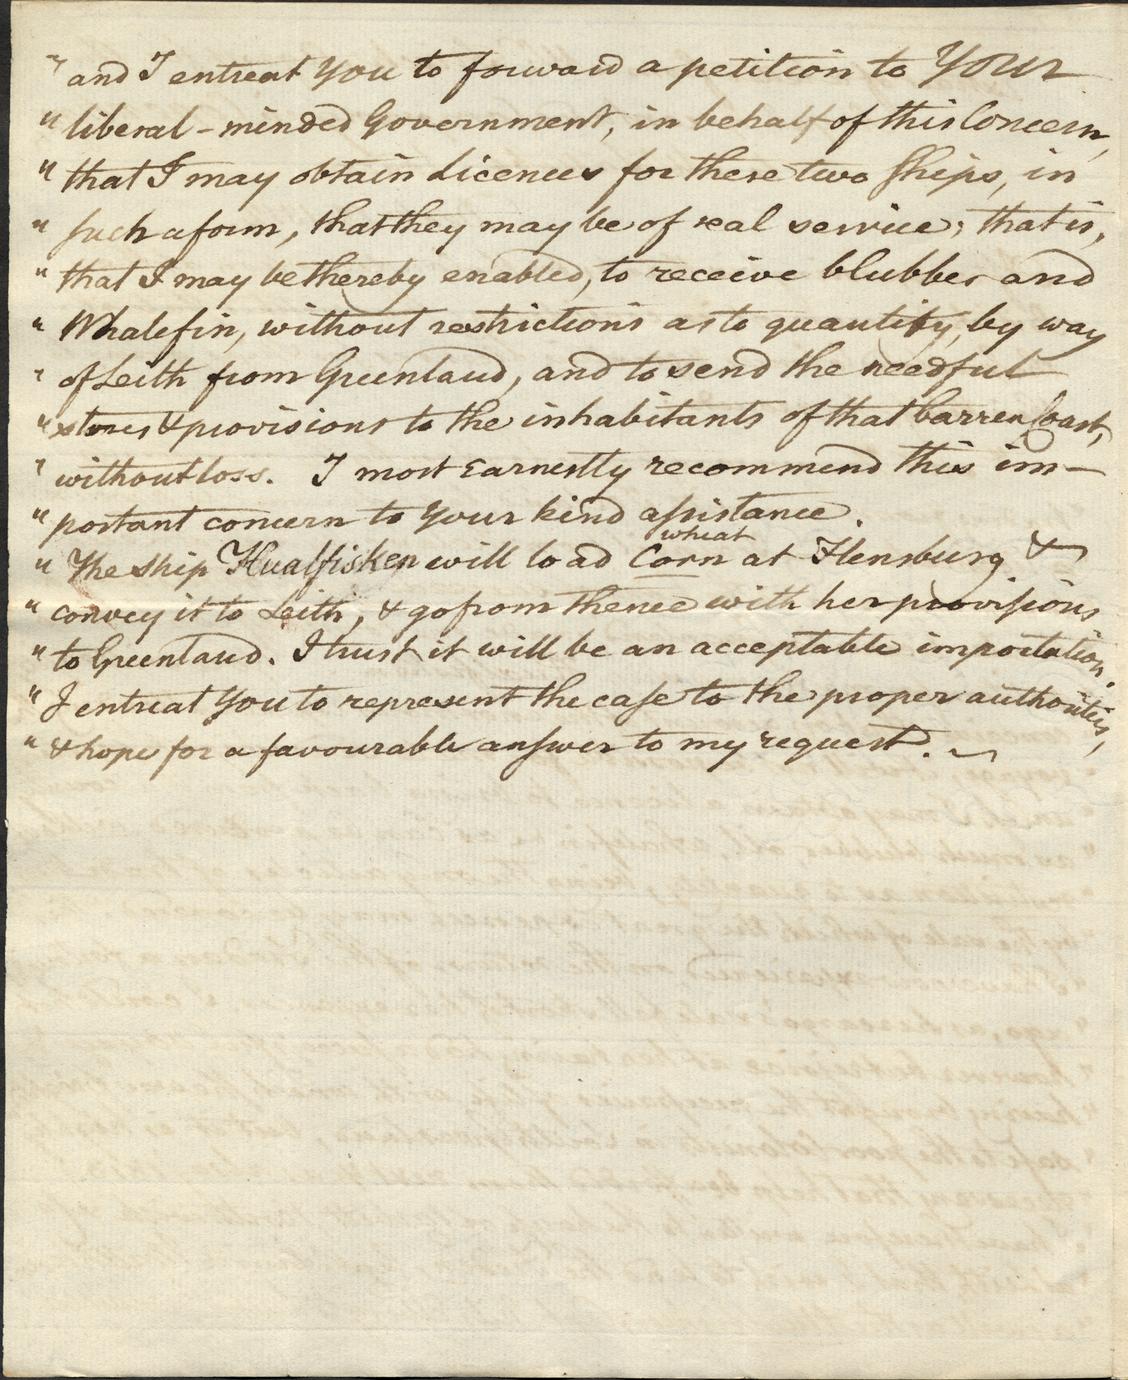 " and I entreat You to forward a petition to Your
" liberal-minded Government, in behalf of this Concern,
" that I may obtain Licences for these two Ships, in
" such a form, that they may be of real service; that is,
" that I may be thereby enabled, to receive blubber and
" Whalefin, without restrictions as to quantity, by way
" of Leith from Greenland, and to send the needful
" stores & provisions to the inhabitants of that barren Coast,
" without loss. I most Earnestly recommend this im-
" portant concern to Your kind assistance.
wheat
" The ship Hualfisken will load Corn at Flensburg &
" convey it to Leith, & go from thence with her provisions
" to Greenland. I trust it will be an acceptable importation.
" I entreat You to represent the case to the proper authorities,
" & hope for a favourable answer to my request. ~